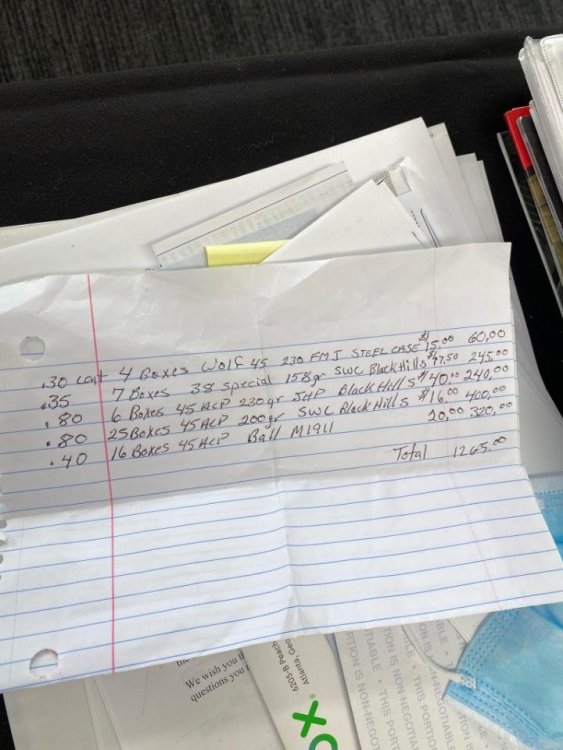 .30 cent 4 Boxes Wolf 45 230 FMJ STEEL CASE $15.00 60.00
.35 7 Boxes 38 special 158gr SWC Black Hills $17.50 245.00
.80 6 Boxes 45 ACP 230gr JHP Black Hills $40.00 240.00
.80 25 Boxes 45 ACP 200gr SWC Black Hills $16.00 400.00
.40 16 Boxes 45 ACP Ball M1911 20.00 320.00
Total 1265.00
We wish you
questions you
6205-B Peach
Atlanta, Geo
THIS PORTION
IS NON-NEGOTIABLE